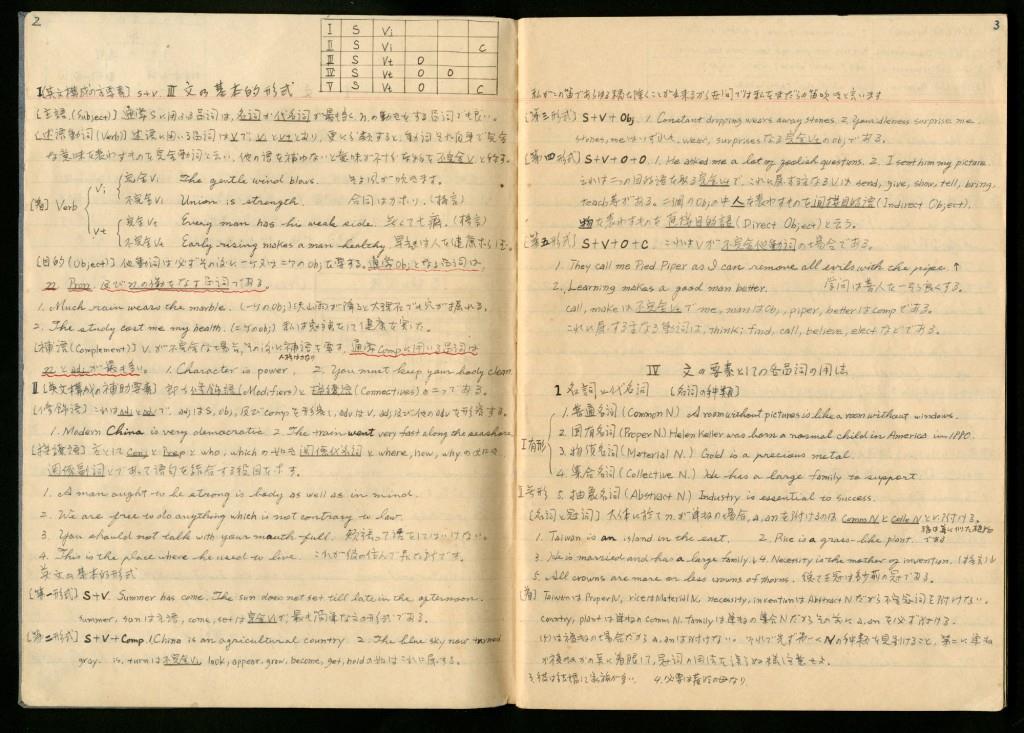 2
I S Vi
II S Vi C
III S Vt O
IV S Vt O O
V S Vt O C
I [英文構成の主要素] S+V. III 文の基本的形式
[主語] (Subject)] 通常Sに用ゐる品詞は、名詞か代名詞が最も多く、nの動きをする品詞でもよい。
[述語動詞 (Verb)] 述語に用ゐる品詞はVで、ViとVtとあり、更に
な意味を表わすものを完全動詞と云い、他の語を補わないと意味が 不完全Vと称す。
[着] Verb
Vi
完全Vi The gentle wind blows. そよ風が吹きます。
不完全Vi Union is strength. 合同は力ナリ. (格言)
Vt
完全Vt Every man has his weak side. (格言)
不完全Vt Early rising makes a man healthy. 早起は人を健康
[目的 (Object)] 他動詞は必ずその後に一ケ又は二ケのobjを要する。通常Objとなる品詞は、
n, Pron. 及びnの働をなす品詞である。
1. Much rain wears the marble. (一ケのobj)
2. The study cost me my health. (二ケのobj) 私は勉強をして健康を害した。
[補語 (Complement)] V.が不完全な場合、その後に補語を要す、通常Compに用いる品詞は
nとadjが最も多い。 1. Character is power. 2. You must keep your body clean.
人格は力なり
II [英文構成の補助要素] 即ち修飾語 (Modifiers) と接続語 (Connectives) の二つである。
[修飾語] これはadjとadvで、adjはS, obj, 及びcompを形容し、advはV, adj, 及び他のadvを形容する。
1. Modern China is very democratic 2. The train went very fast along the seashore
[接護語] 主としてConjとPrepとwho, whichの如き関係代名詞とwhere, how, whyの如き
関係副詞とであって語句を結合する役目をなす。
1. A man ought to be strong is body as well as in mind.
2. We are free to do anything which is not contrary to law.
3. You should not talk with your mouth full.
4. This is the place where he used to live. これが彼の住んで居た所です。
英文の基本的形式
[第一形式] S+V. Summer has come. The sun does not set till late in the afternoon.
summer, sunは主語, come, setは完全Viで、最も簡単な文の形式である。
[第二形式] S+V+Comp. 1. China is an agricultural country. 2. The blue sky now turned
gray. is, turnは不完全Vi look, appear, grow, become, get, holdの如はこれに属する。
3
私がこの笛であらゆる禍を除くことが出来るから
[第三形式] S+V+Obj. 1. Constant dropping wears away stones. 2. Your idleness surprise me.
stones, meはいずれも、wear, surprisesなる完全VtのObjである。
[第四形式] S+V+O+O. 1. He asked me a lot of foolish questions. 2. I sent him my picture.
これは二つの目的語を取る完全Vtで、これに属する主なるVtは send, give, show, tell, bring,
teach等がある。二個のObjの中人を表わすものを間接目的語 (Indirect Object),
物を表わすものを直接目的語 (Direct Object) と云う。
[第五形式] S+V+O+C. これはVが不完全他動詞の場合である。
1. They call me Pied Piper as I can remove all evils with the pipe. ↑
2. Learning makes a good man better. 学問は善人を一そう良くする。
call, makeは不完全Vtで me, manはObj, piper, betterはCompである。
これに属する主なる動詞は、think, find, call, believe, electなどである。
IV 文の要素としての各品詞の用法
1 名詞と代名詞 [名詞の種類]
I 有形
1. 普通名詞 (Common N) A room without pictures is like a room without windows.
2. 固有名詞 (Proper N.) Helen Keller was born a normal child in America in 1880.
3. 物質名詞 (Material N.) Gold is a precious metal.
4. 集合名詞 (Collective N.) He has a large family to support.
II 無形 5. 抽象名詞 (Abstract N.) Industry is essential to success.
[名詞と冠詞] 大体に於てnが単数の場合、a, anを附けるのは Comm N.とColle N.とに附ける。
1. Taiwan is an island in the east. 2. Rice is a grass-like plant.
3. He is married and has a large family. 4. Necessity is the mother of invention.
5. All crowns are more or less crowns of thorns.
[着] TaiwanはProper N, riceはMaterial N, necessity, inventionはAbstract Nだから不定冠詞を附けない。
country, plantは単数のcomm N. familyは単数の集合Nだからその前にa, anを必ず附ける。
(5)は複数の場合だからa, anは附けない。それで先ず第一にNの種類を見分けること、第二に単数
か複数かの点に着眼して、冠詞の用法を誤らぬ様注意せよ。
3. 彼は結婚して家族が多い 4. 必要は発明の母なり